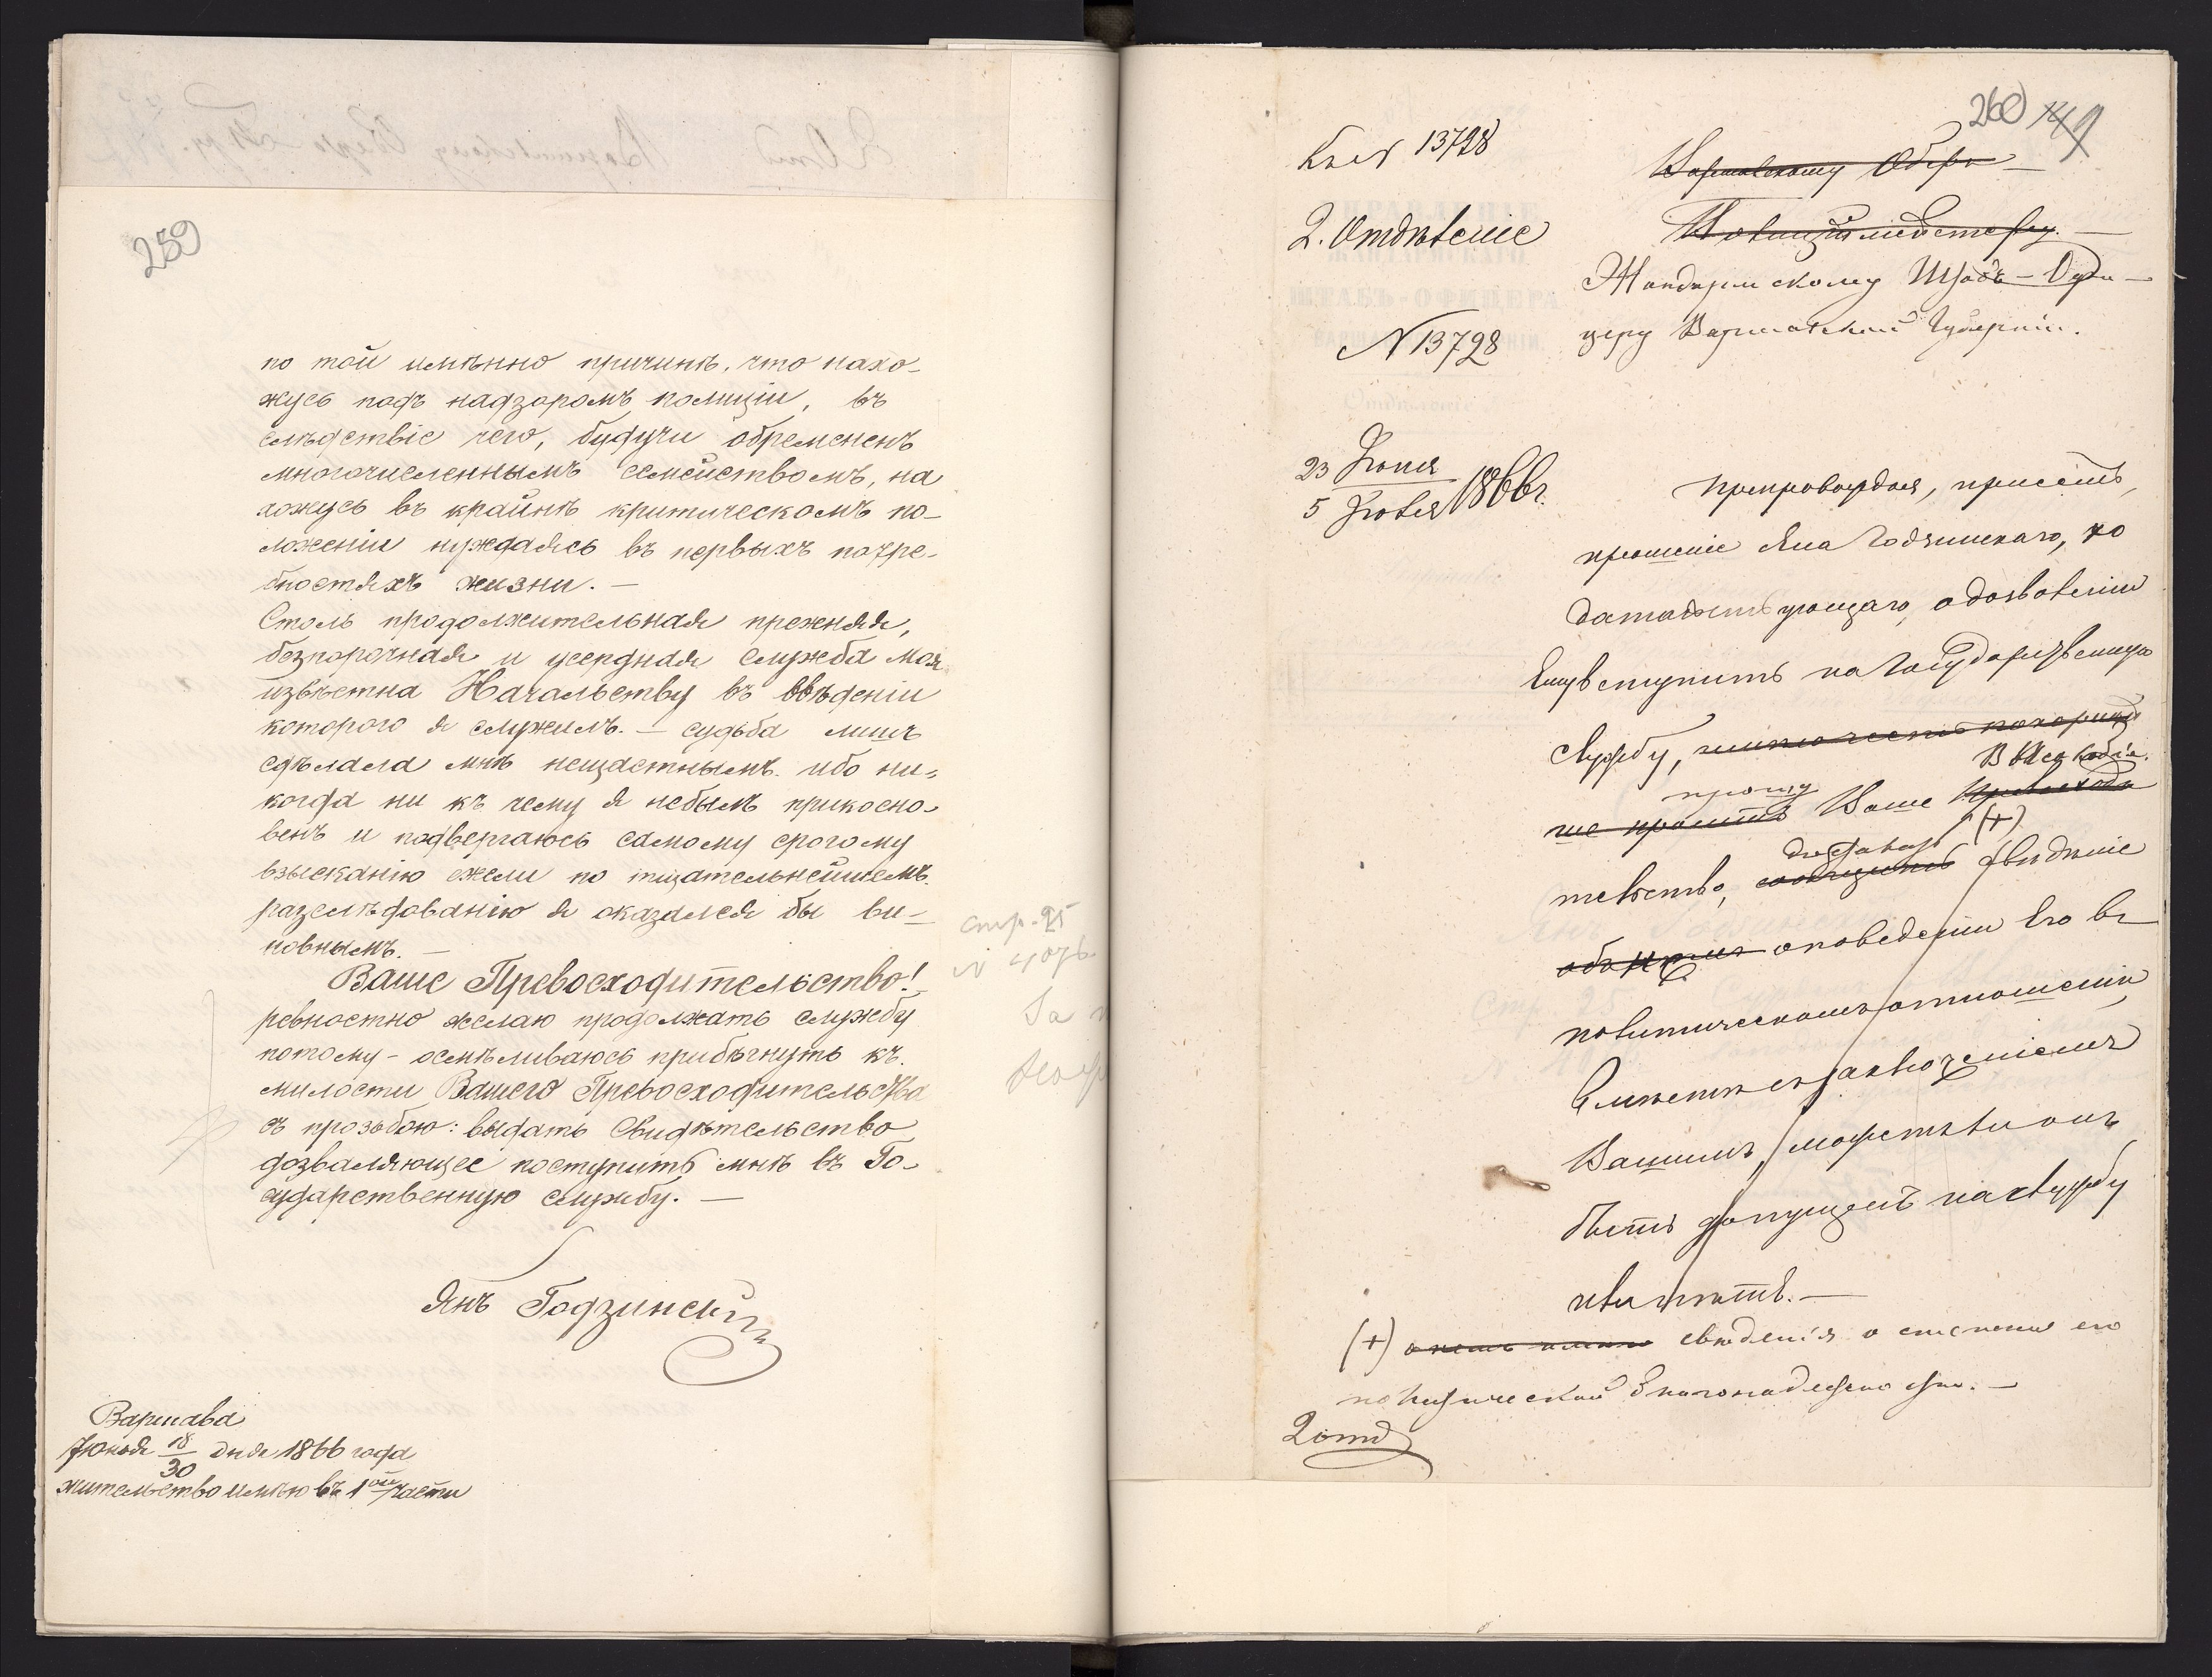 259
по той имѣнно причинѣ, что нахо-
жусь подъ надзоромъ полиціи, въ
слѣдствіе чего, будучи обремененъ
многочисленнымъ семействомъ, на
хожусь въ крайнѣ критическомъ по-
ложеніи нуждаясь въ первыхъ потре-
бностяхъ жизни. —
Столь продолжительная прежняя,
безпорочная и усердная служба моя
извѣстна Начальству въ вѣденіи
которого я служилъ. — судьба лишъ
сдѣлала мнѣ нещастнымъ. ибо ни-
когда ни къ чему я небылъ прикосно-
венъ и подвергаюсь самому срогому
взысканію ежели по тщательнейшемъ
разслѣдованію я оказался бы ви-
новнымъ. —
Ваше Превосходительство!
ревностно желаю продолжать службу
потому - осмѣливаюсь прибѣгнуть къ
милости Вашего Превосходительства
съ прозьбою: выдать Свидѣтельство
дозваляющее поступить мнѣ въ Го-
сударственную службу. —
Янъ Годзинскій
Варшава
Іюня 18/30 дня 1866 года
жительство имѣю въ 1ой части
стр. 25
260
Къ № 13728
2. Отдѣленіе
№ 13728
23 Іюня
5 Іюля 1866 г.
Варшавскому Оберъ-
Полицiймейстеру. —
Жандармскому Штабъ-Офи-
церу Варшавской Губерніи.
Препровождая, присемъ,
прошеніе Яна Годзинскаго, хо
датайствующаго, о дозволеніи
Ему вступить на Государственную
Службу,
прошу Ваше Превосходи
В Высокоблаг.
тельство, сообщить свѣдѣніе
доставить (+)
о поведеніи Его въ
политическомъ отношеніи
вмѣстѣ съ заключеніемъ
Вашимъ, можетъ ли онъ
быть допущенъ на службу
или нѣтъ. —
(+) свѣденія о степени его
политической благонадежности. —
2 отд